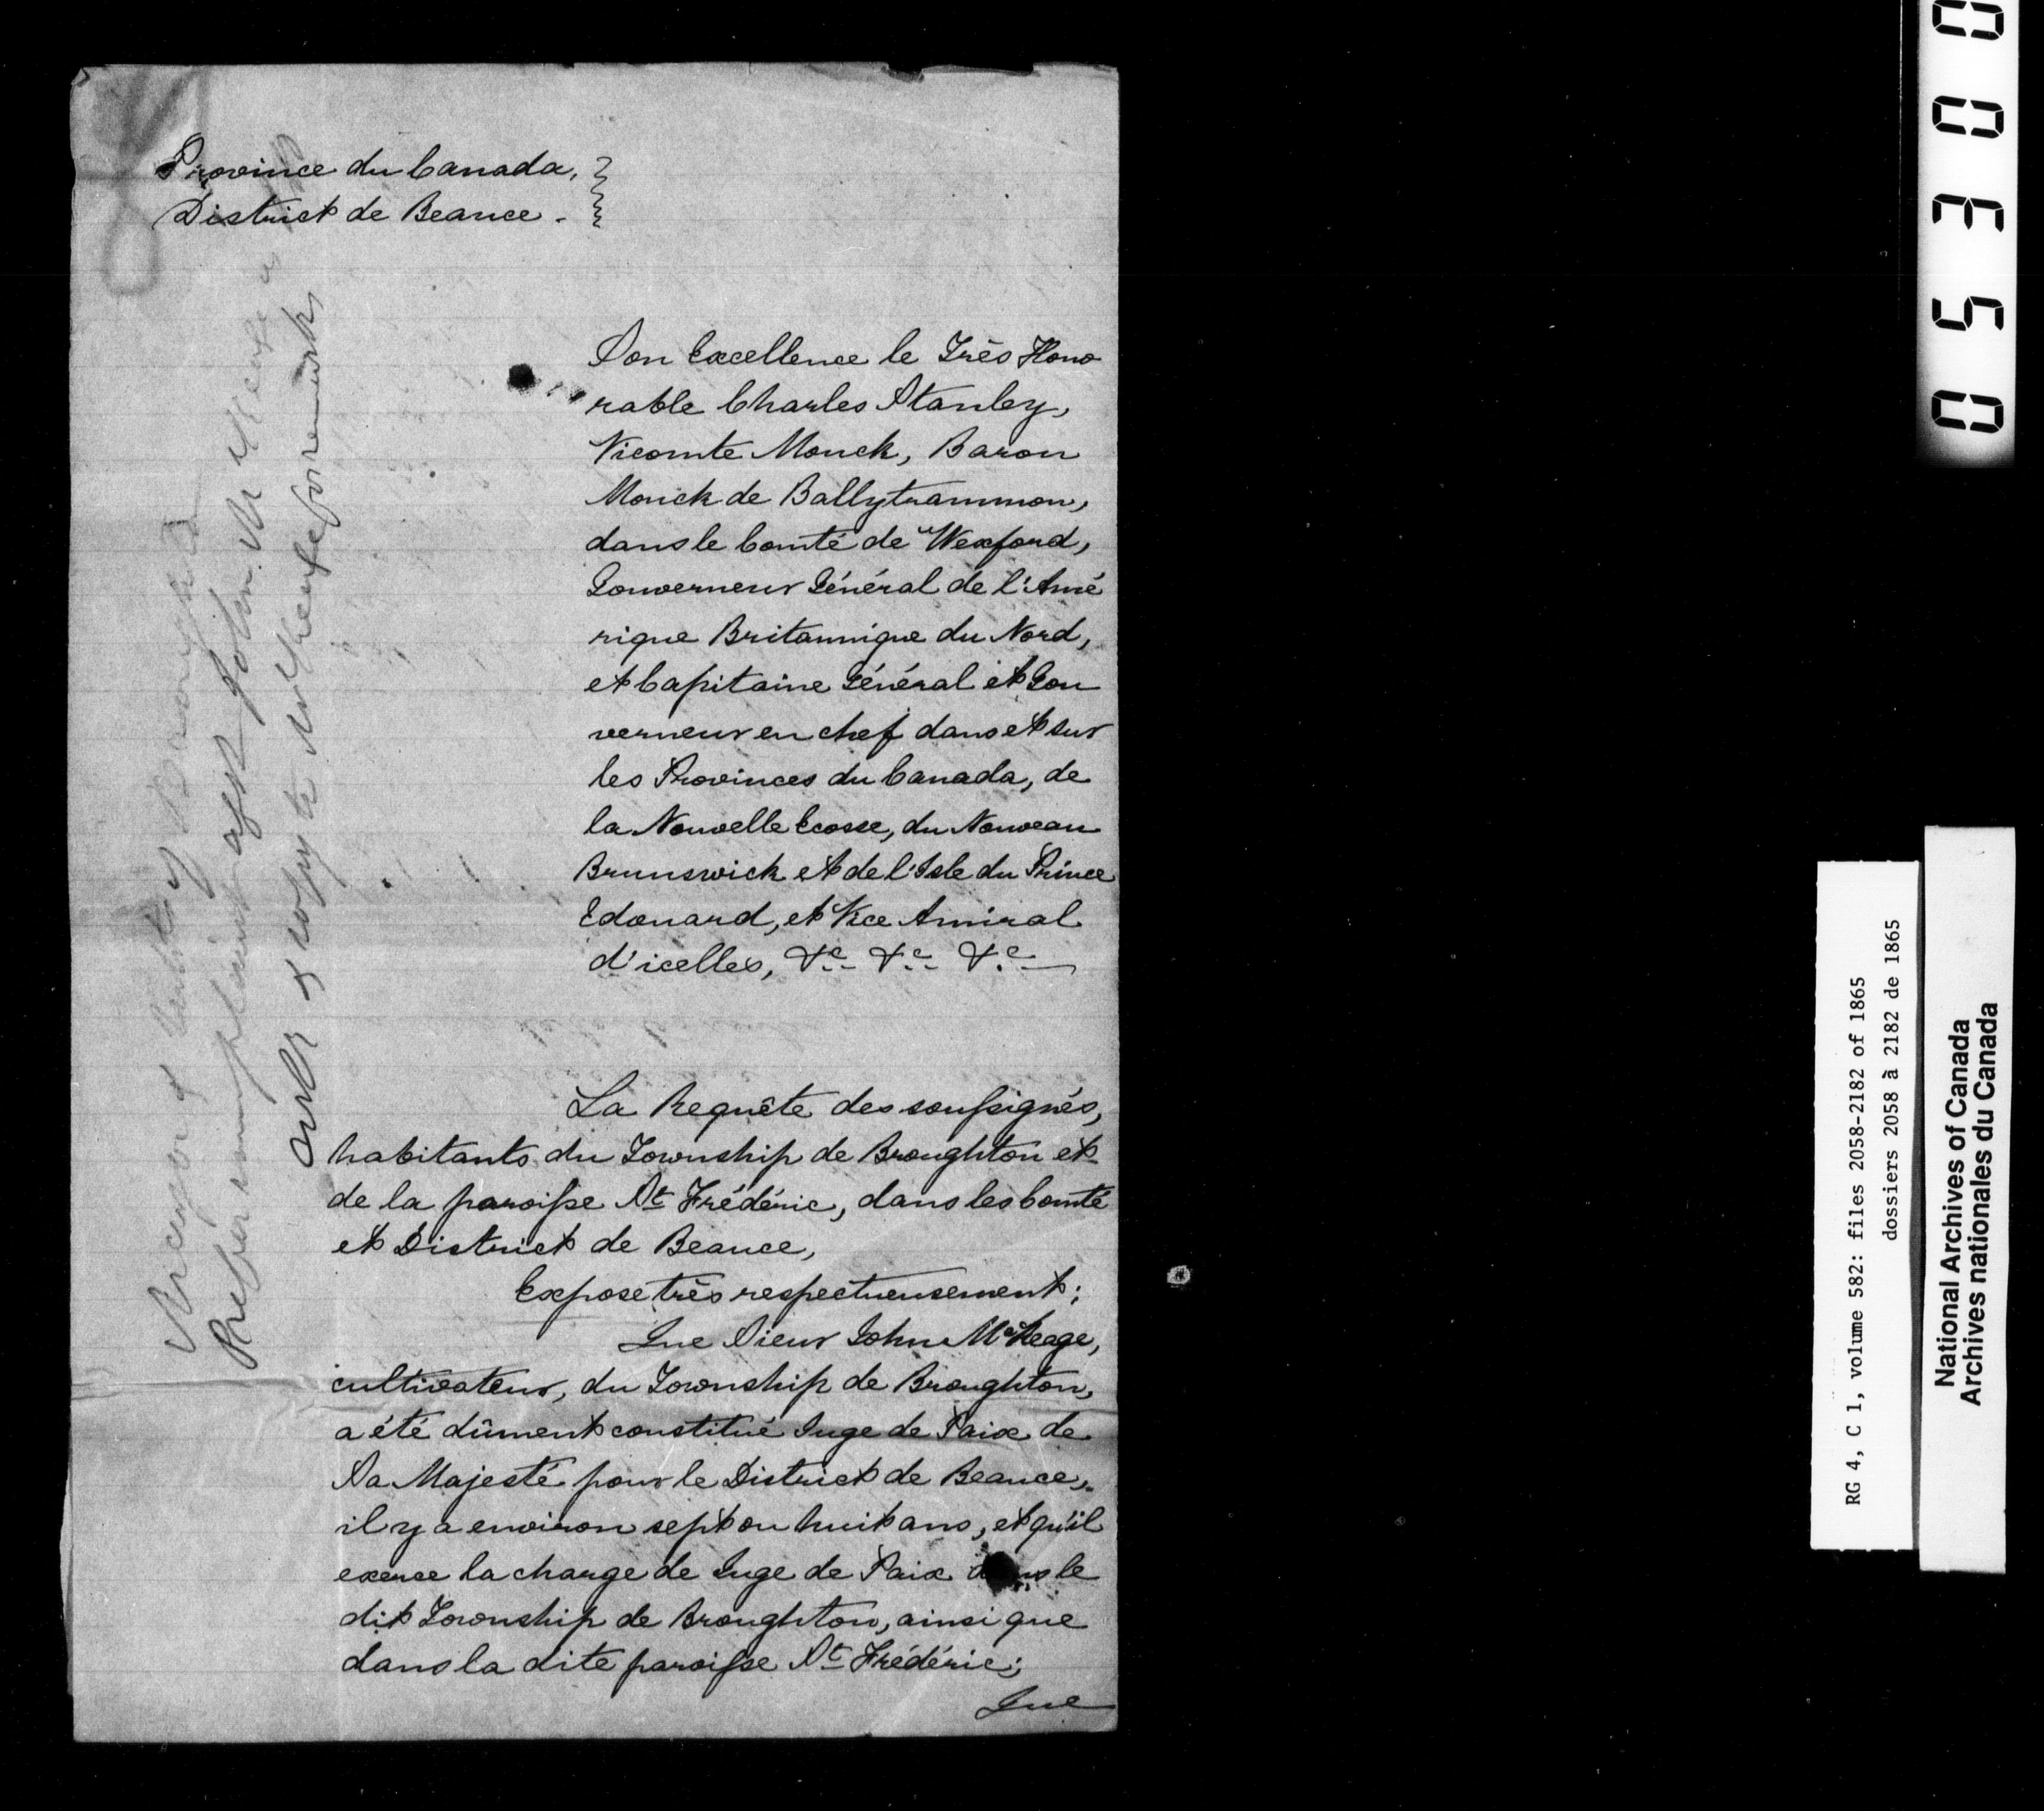 Province du Canada,
District de Beauce.
Son Excellence le Très Hono
rable Charles Stanley,
Vicomte Monck, Baron
Monck de Ballytrammon,
dans le Comté de Wexford,
Gouverneur Général de l'Amé
rique Britannique du Nord,
et Capitaine Général et Gou
verneur en chef dans et sur
les Provinces du Canada, de
la Nouvelle Ecosse, du Nouveau
Brunswick et de l'Isle du Prince
Edouard, et Vice Amiral
d'icelles, &c &c &c
La Requête des soussignés,
habitants du Township de Broughton et
de la paroisse St Frédéric, dans les Comté
et District de Beauce,
Expose très respectueusement;
Que Sieur John McKeage,
cultivateur, du Township de Broughton,
a été dûment constitué Juge de Paix de
Sa Majesté pour le District de Beauce,
il y a environ sept ou huit ans, et qu'il
exerce la charge de Juge de Paix dans le
dit Township de Broughton, ainsi que
dans la dite paroisse St Frédéric;
Que
of Broughton
Prefer complaint agst John McKeage
& copy to McKeage for remarks
0350
RG 4, C 1, volume 582: files 2058-2182 of 1865
dossiers 2058 à 2182 de 1865
National Archives of Canada
Archives nationales du Canada